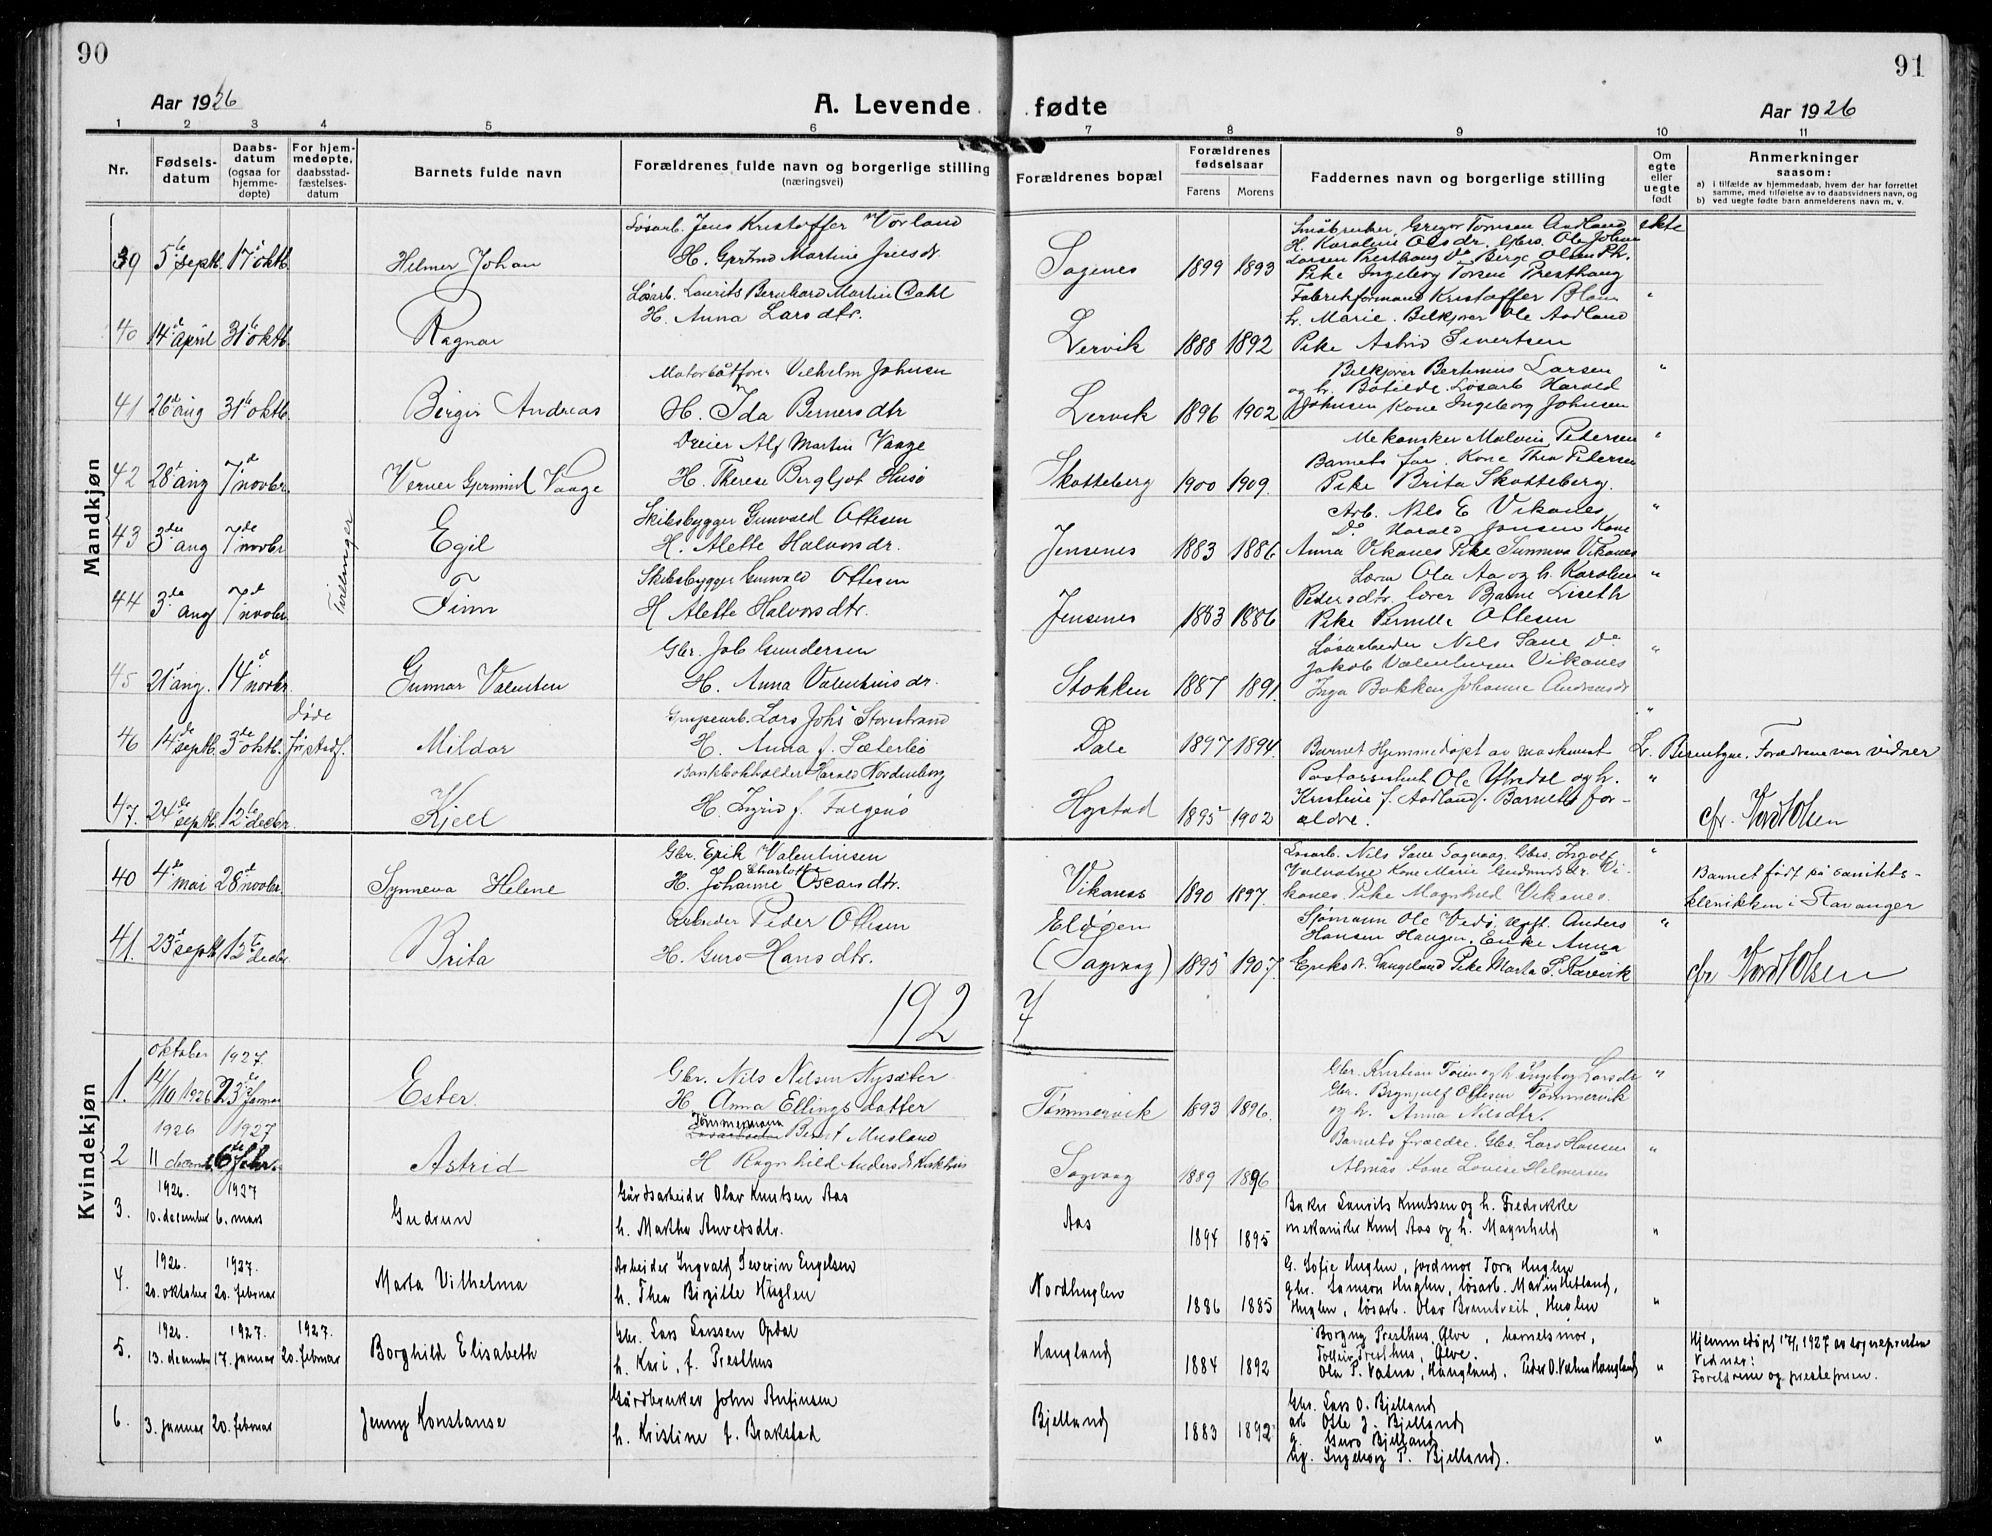 90
91
Aar 1926
A. Levende fødte
Aar 1926
1 2 3 4 5 6 7 8 9 10 11
Nr.
Fødsels-
datum
Daabs-
datum
(ogsaa for
hjemme-
døpte)
For hjem-
medøpte,
daabsstad-
fæstelses-
datum
Barnets fulde navn
Forældrenes fulde navn og borgerlige stilling
(næringsvei)
Forældrenes bopæl
Forældrenes
fødselsaar
Farens Morens
Faddernes navn og borgerlige stilling
Om
egte
eller
uegte
født
Anmerkninger
saasom:
a) i tilfælde av hjemmedaab, hvem der har forrettet
samme, med tilføielse av to daabsvidners navn, og
b) ved uegte fødte barn anmelderens navn m. v.
Mandkjøn
39 5te septb. 17de oktb. Helmer Johan
Løsarb. Jens Kristoffer Vorland
H. Gjertrud Martine Jensdr.
Sagenes 1899 1893
Småbruker Gregor Tomsen Aadland
H. Karoline Olsdr. Gbr. Ole Johan
Larsen Presthaug Do Berge Olsen Ph.
Pike Ingeborg Torsen Presthaug
ekte
40 14de april 31te oktb. Ragnar
Løsarb. Laurits Bernhard Martin Dahl
H. Anna Larsdtr.
Lervik 1888 1892
Fabrikformand Kristoffer
h. Marie. Ole Aadland
Pike Astrid Sivertsen
"
41 26de aug 31te oktb. Birger Andreas
Motorbåtfører Vilhelm Johnsen
H. Ida Bernersdtr
Lervik 1896 1902
Bertinius Larsen
og h. Botilde. Løsarb Harald
Johnsen Kone Ingeborg Johnsen
"
42 28de aug 7de novbr. Verner Gjermund Vaage
Dreier Alf Martin Vaage
H. Therese Bergljot Husø
Skotteberg 1900 1909.
Mekaniker Malvin Petersen
Barnets far. Kone Thea Petersen
Pike Brita Skotteberg.
"
43 3die aug 7de novbr Tvillinger Egil
Skibsbygger Gunvald Ottesen
H. Alette Halvorsdr.
Jensenes 1883 1886
Arb. Nils E Vikanes
Do Harald Jensen Kone
Anna Vikanes Pike Sunneva Vikanes
"
44 3die aug 7de novbr. Finn
Skibsbygger Gunvald Ottesen
H Alette Halvorsdtr.
Jensenes 1883 1886
Lærer Ole Aa og h. Karoline
Pedersdtr. lærer Bjarne Liseth
Pike Pernille Ottesen
"
45 21de aug. 14de novbr. Gunnar Valentin
Gbr. Job Gundersen
H. Anna Valentinsdr.
Stokken 1887 1891.
Løsarbeider Nils Sane Do
Jakob Valentinsen Vikanes
Inga Bakken Johanne Andreasdr
"
46 14de septb. 3die oktb. døde Mildor
Grupearb. Lars Johs Storestrand
H. Anna f. Sæterbø
Dale 1897 1894.
Barnet hjemmedøpt av maskinist L. Berentzen. Forældrene var vidner
"
47. 24de septb. 12te decbr. Kjell
Bankbokholder Harald Nordenborg
H. Ingrid f. Falgerø
Hystad 1895 1902
Postassistent Ole Ytredal og h.
Kristine f. Aadland. Barnets for-
ældre.
"
cfr. Kordt Olsen
Kvindekjøn
40 4de mai 28de novbr. Synneva Helene
Gbr. Erik Valentinsen
H. Johanne Charlotte Oscarsdtr.
Vikanes 1890 1897.
Løsarb. Nils Sane Sagvaag. Gbr. Ingolf
Valvatne Kone Marie Gudmundsdr. Vi-
kanes Pike Magnhild Vikanes.
"
Barnet født på sanitets-
klinikken i Stavanger
41. 23de septb 12te decbr. Brita
Arbeider Peder Ottesen
H. Guro Hansdtr.
Eldøen
(Sagvaag) 1895 1907.
Sjømann Ole Vedø. Anders
Hansen Haugen. Enke Anna
Eriksdr. Langeland Pike Marta S. Kårevik
"
cfr Kordt Olsen
1927
oktober 1927.
1. 14/10 1926 23de januar Ester
Gbr. Nils Nilsen Nysæter
H. Anna Ellingsdatter
Tømmervik 1893 1896.
Gbr. Kristian Teien og h. Ingeborg Larsdr
Gbr. Brynjulf Ottesen Tømmervik
og h. Anna Nilsdtr.
"
1926 1927
2 11 decemb. 6te febr. Astrid
Tømmermann Løsarbeider Bernt Musland
H Ragnhild Andersdr Kirkhus
Sagvaag 1889 1896
Barnets forældre. Gbr. Lars Hansen
Almås Kone Lovise Helmersen
"
1926. 1927
3. 10. december 6. mars Gudrun
Gårdsarbeider Olav Knutsen Aas
h. Martha Anvedsdtr.
Aas 1894 1895
Baker Laurits Knutsen og h. Fredrikke
mekaniker Knut Aas og h. Magnhild
"
1926. 1927.
4. 20. oktober 20. februar Marta Vilhelma
Arbeider Ingvald Severin Engelsen
h. Thea Birgitte Huglen
Nordhuglen 1886 1885
G. Sofie Huglen, jordmor Torn Huglen
gbr. Samson Huglen, løsarb. Marin Hetland,
Huglen, løsarb. Olav Brantveit, Huglen
"
1926 1927. 1927.
5. 13. december 17. januar 20. februar Borghild Elisabeth
Gbr. Lars Larssen Opdal
h. Kari, f. Presthus
Haugland 1884 1892
Borgny Presthus, Ølve, barnets mor,
Tolleiv Presthus, Ølve.
Ola P. Vatna, Haugland. Peder O. Vatna Haugland
"
Hjemmedøpt 17/1 1927 av sognepresten
Vidner:
Foreldrene og prestefruen.
6. 3. januar 20. februar Jenny Konstanse
Gårdbruker John Anfinsen
h. Kristine f. Brakstad
Bjelland 1883 1892
Gbr. Lars O. Bjelland
arb Otte J. Bjelland
g. Guro Bjelland
ug. Ingeborg P. Bjelland.
"